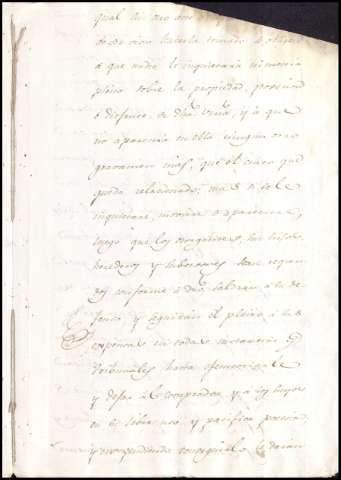 qual
de
que nadie le inquietará ni moverá
pleito sobre la propiedad, posesion
ó disfrute de dha
no aparecerá en ella ningun otro
gravamen mas, que el censo que
queda relacionado; mas si se le
inquietare, moviere ó apareciere,
luego que los otorgantes, sus hijos
herederos y subcesores sean requeri
dos conforme á dro, saldran á la de
fensa y seguiran el pleito á sus
expensas en todas instancias y
tribunales hasta
y dejar al comprador, y á sus hijos
en su libre uso y pacifica posesion
y no pudiendo conseguirlo le daran